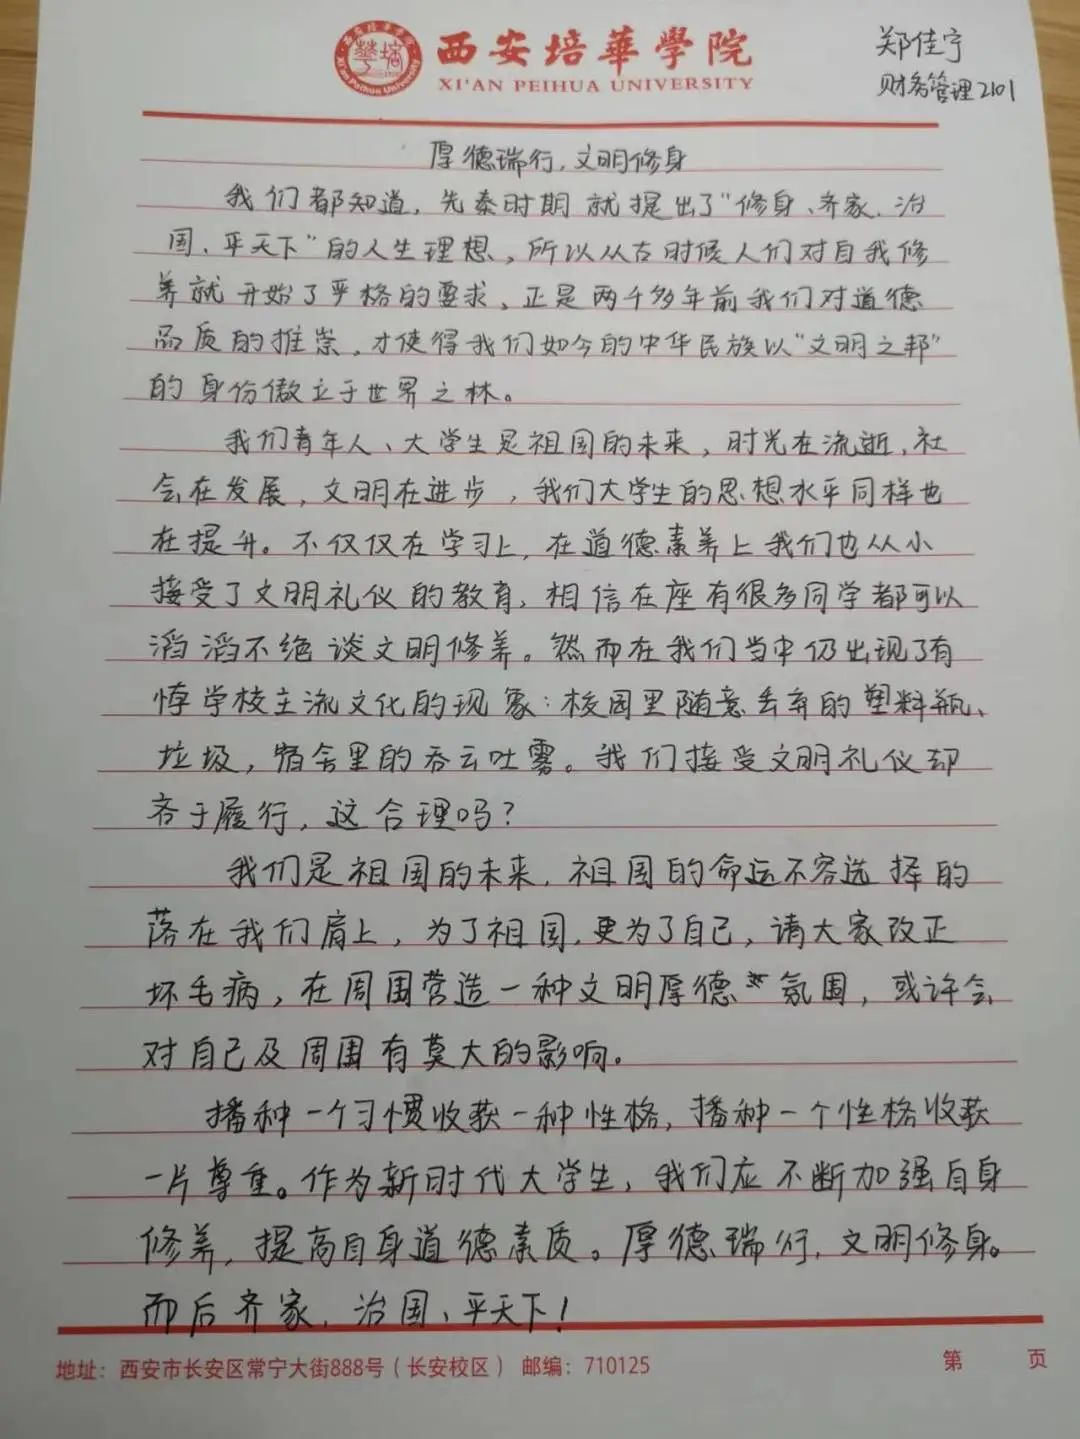 西安培華學院
XI'AN PEIHUA UNIVERSITY
郑佳宁
财务管理2101
厚德瑞行,文明修身
我们都知道,先秦时期就提出了"修身、齐家、治
国、平天下"的人生理想,所以从古时候人们对自我修
养就开始了严格的要求,正是两千多年前我们对道德
品质的推崇,才使得我们如今的中华民族以"文明之邦"
的身份傲立于世界之林。
我们青年人、大学生是祖国的未来,时光在流逝,社
会在发展,文明在进步,我们大学生的思想水平同样也
在提升。不仅仅在学习上,在道德素养上我们也从小
接受了文明礼仪的教育,相信在座有很多同学都可以
滔滔不绝谈文明修养。然而在我们当中仍出现了有
悖学校主流文化的现象:校园里随意丢弃的塑料瓶、
垃圾,宿舍里的吞云吐雾。我们接受文明礼仪却
吝于履行,这合理吗?
我们是祖国的未来,祖国的命运不容选择的
落在我们肩上,为了祖国,更为了自己,请大家改正
坏毛病,在周围营造一种文明厚德氛围,或许会
对自己及周围有莫大的影响。
播种一个习惯收获一种性格,播种一个性格收获
一片尊重。作为新时代大学生,我们应不断加强自身
修养,提高自身道德素质。厚德瑞行,文明修身。
而后齐家,治国、平天下!
地址:西安市长安区常宁大街888号(长安校区) 邮编:710125
第 页